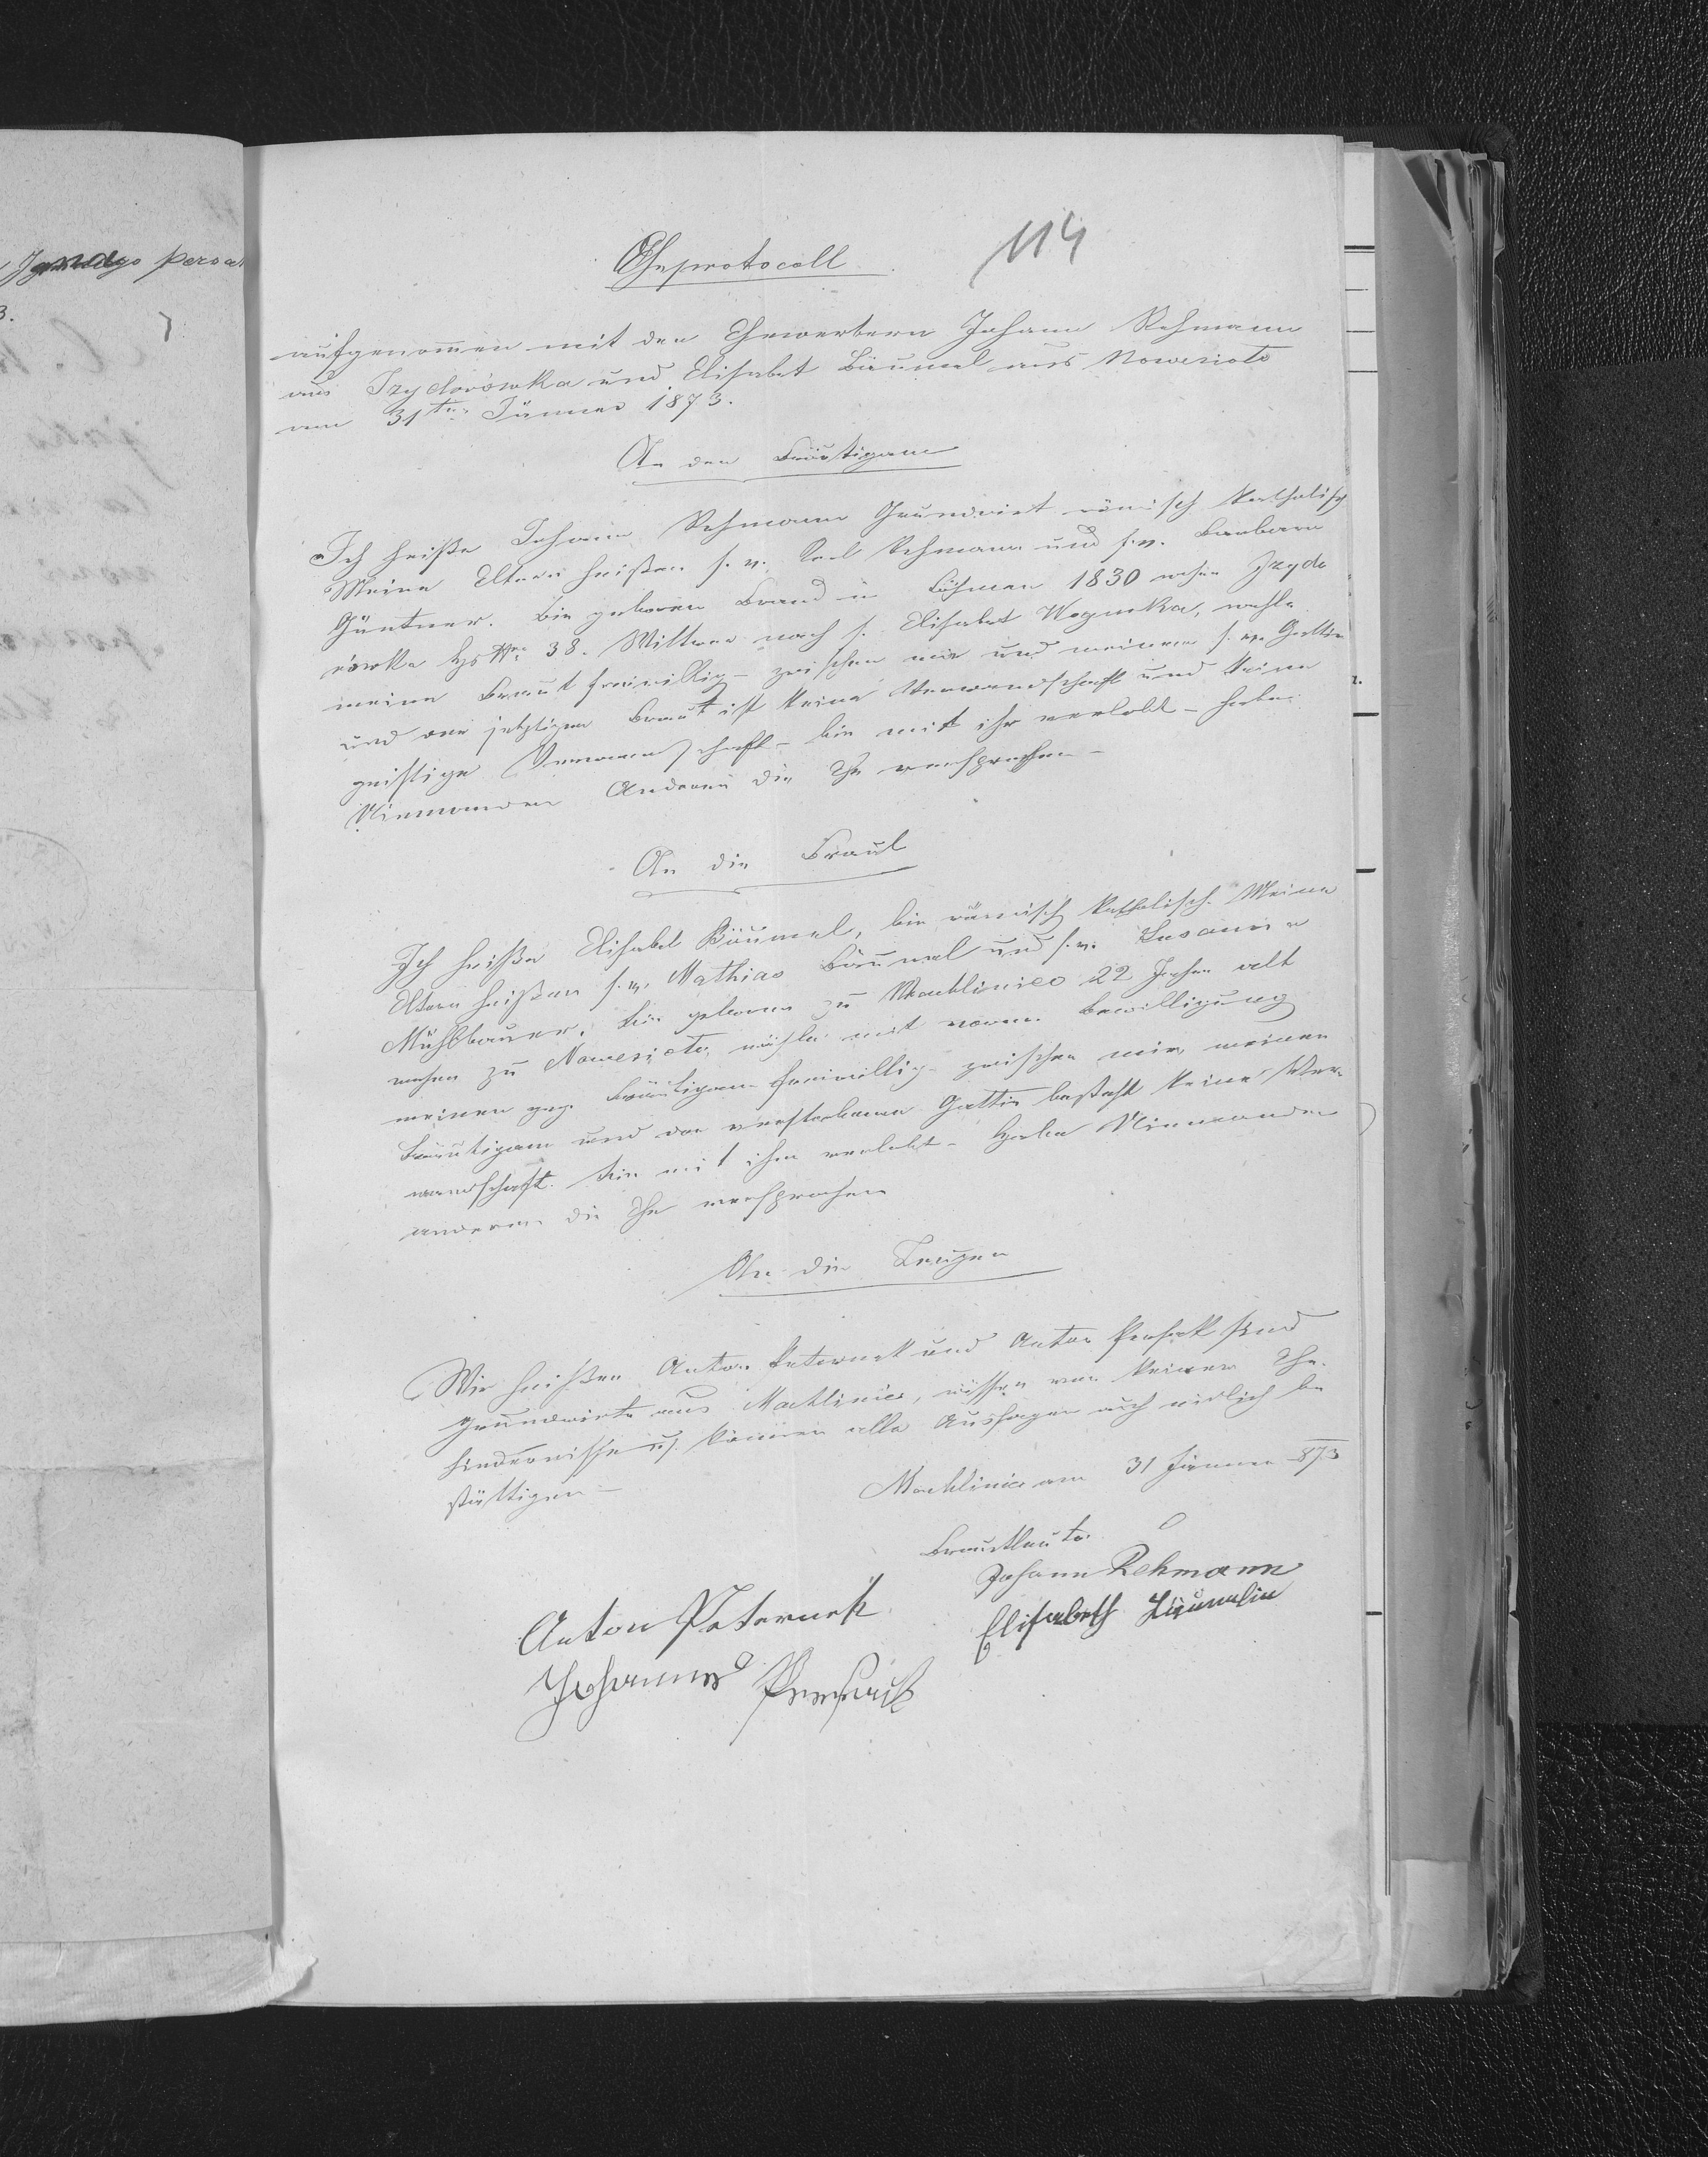 Jgnacego
114
Eheprotocoll
aufgenom̄en mit den Ehewerbern Johann Rehmann
aus Izydorówka und Elisabet Bäumel aus Nowesioło
am 31ten Jänner 1873.
An den Bräutigam
Ich heiße Johann Rehmann Grundwirt römisch katholisch
Meine Eltern heißen s. v. Karl Rehmann und s. v. Barbara
Güntner. Bin geboren Brand in Böhmen 1830 wohne Izydo
rówka Hs Nro 38. Witwer nach s. Elisabet Wognrka, wähle
meine Braut freiwillig – zwischen mir und meiner s. v. Gattin
und der jetzigen Braut ist keine Verwandschaft und keine
geistige Verwandschaft – bin mit ihr verlobt – habe
Niemanden Anderen die Ehe versprochen –
An die Braut
Ich heiße Elisabet Bäumel, bin römisch katholisch. Meine
Eltern heißen s. v. Mathias Bäumel und s. v. Susanna
Mühlbauer. Bin geboren zu Machlinice 22 Jahre alt
wohne zu Nowesioło, wähle mit Bewilligung
meinen geg. Bräutigam freiwillig – zwischen mir, meinem
Bräutigam und der verstorbenen Gattin besteht keine Ver-
wandschaft. Bin mit ihm verlobt – Habe Niemanden
anderen die Ehe versprochen
An die Zeugen
Wir heißen Anton Paternek und Anton sind
Grundwirte aus Machlinice, wissen von keinem Ehe-
hindernisse u. können alle Aussagen auch eidlich be
stättigen –
Machlinice am 31 Jänner 873
Brautleute
Johann Rehmann
Elisabeth Bäumelin
Anton Paternek
Johannes